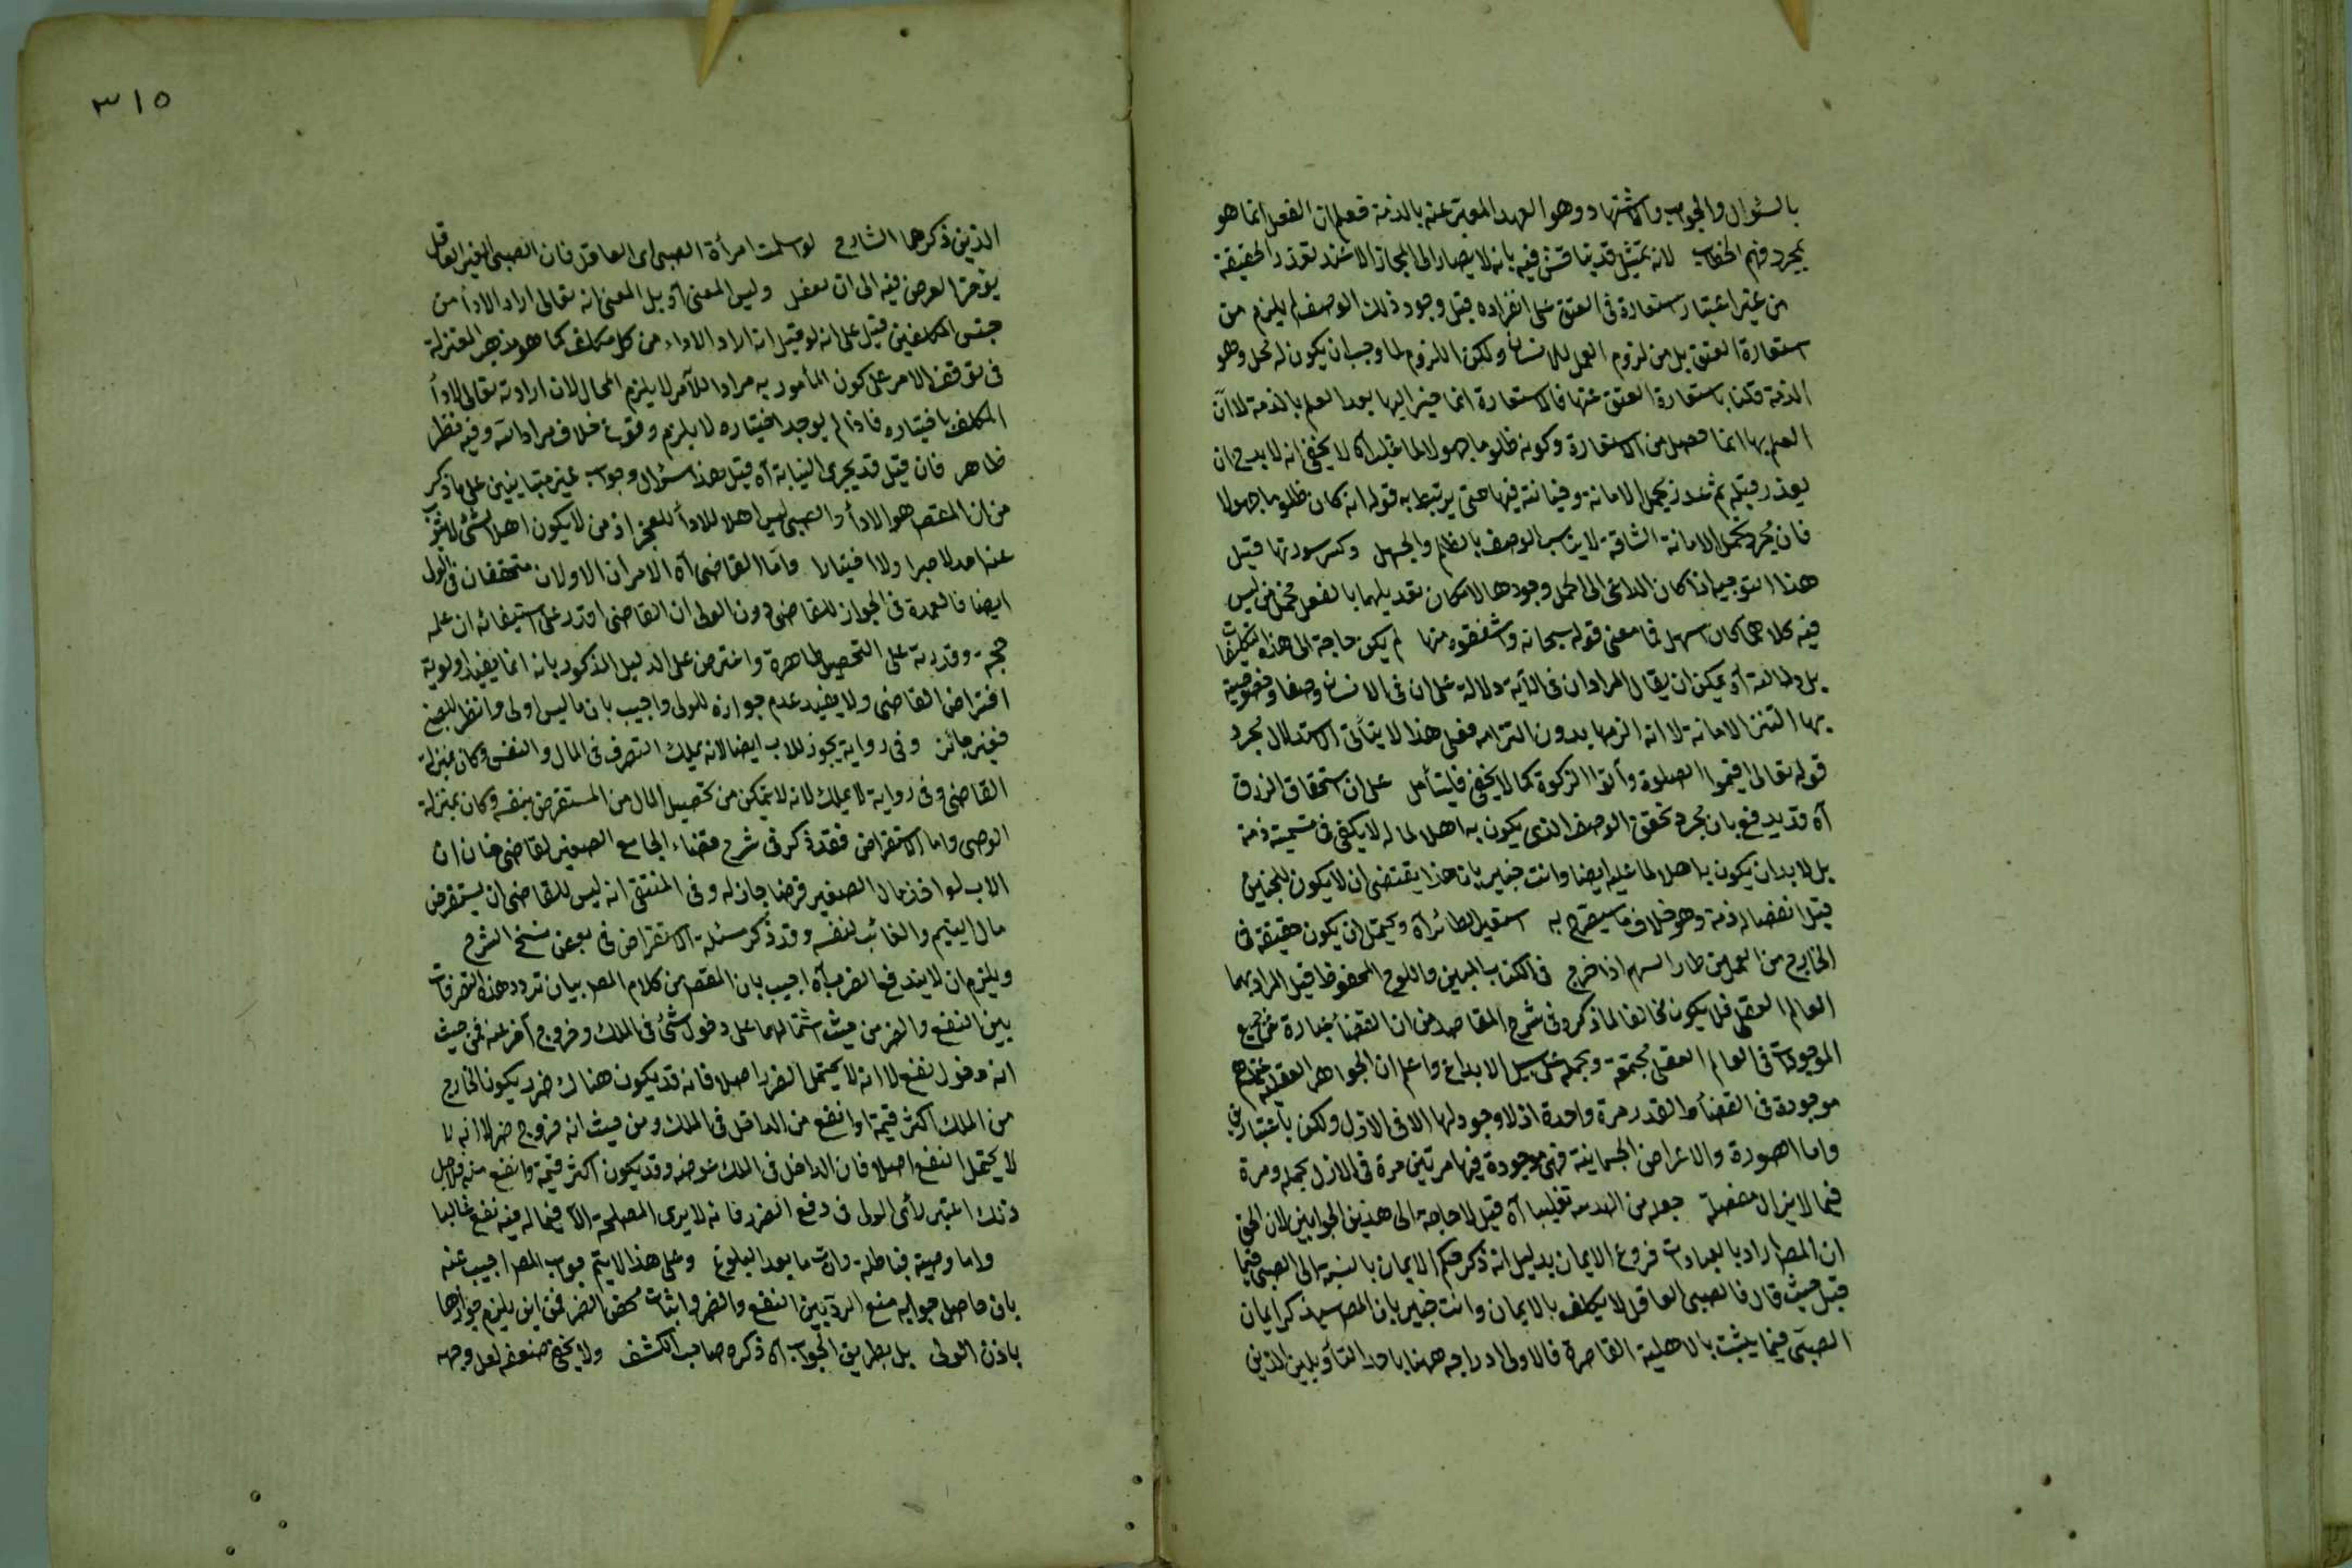 بالسؤال والجواب والاشتهاد وهو العهد المعبر عنه بالذمة فعلم ان الفعل انما هو
بمجرد فهم الخطاب لانه تمثيل قد يناقش فيه بانه لا يصار الى المجاز الا عند تعذر الحقيقة
من غير اعتبار استعارة في العنق على انفراده قبل وجود ذلك الوصف لم يلزم من
استعارة العنق بل من لزوم العمل للانسان ولكن اللزوم لما وجب ان يكون له محل وهو
الذمة وكنا باستعارة العنق عنها فالاستعارة انما اليها بعد العلم بالذمة لا ان
العلم بها انما حصل من الاستعارة وكونه ظلوما جهولا لما قبله اه لا يخفى انه لا بد من ان
يعذر قبله ثم بحمل الامانة وخيانته فيها حتى يرتبط به قوله انه كان ظلوما جهولا
فان مجرد تحمل الامانة الشاقة لا يناسب الوصف بالظلم والجهل وكسر سورتها قيل
هذا التوجيه اذا كان الداعي الى الحمل وجودها لامكان تعديلهما بالفعل
فيه كلاهما كان اسهل في معنى قوله سبحانه واشفقن منها لم يكن حاجة الى هذه التكلفات
بل ولطالعة او يمكن ان يقال المراد ان في الآية دلالة على ان في الانسان وصفا وخصوصية
بها التزم الامانة لا انه الزمها بدون التزامه فعلى هذا لا يتأتى الاستدلال بمجرد
قوله تعالى اقيموا الصلوة وآتوا الزكوة كما لا يخفى فليتأمل على ان استحقاق الرزق
آه قد يدفع بان مجرد تحقق الوصف الذي يكون به اهلا لما له لا يكفي في تسمية ذمة
بل لا بد ان يكون به اهلا لما عليه ايضا وانت خبير بان هذا يقتضي ان لا يكون للجنين
قبل انفصاله ذمة وهو خلاف ما سيصرح به استعير الطائر آه ويحتمل ان يكون حقيقة في
الخارج من العمل من طار السهم اذا خرج في الكتاب المبين واللوح المحفوظ قيل المراد بهما
العالم العقلي فلا يكون مخالفا لما ذكر في شرح المقاصد من ان القضاء عبارة عن جميع
الموجودات في العالم العقلي مجتمعة ومجملة على سبيل الابداع واعلم ان الجواهر العقلية
موجودة في القضاء والقدر مرة واحدة اذ لا وجود لها الا في الازل ولكن باعتبارين
واما الصورة والاعراض الجسمانية فهي موجودة فيها مرتين مرة في الازل مجملة ومرة
فيما لا يزال مفصلة جعله من الهدسة تغليبا آه قيل لا حاجة الى هذين الجوابين لان الحق
ان المصـ اراد بالعبادات فروع الايمان بدليل انه ذكر حكم الايمان بالنسبة الى الصبي فيما
قبل حيث قال فالصبي العاقل لا يكلف بالايمان وانت خبير بان المصـ سيذكر ايمان
الصبي فيما يثبت بالاهلية القاصرة فالاولى ادراجه ههنا باحد التأويلين الذين
٣١٥
الذين ذكرهما الشارح لو اسلمت امرأة الصبي اي العاقل فان الصبي الغير العاقل
يؤخر العرض فيه الى ان يعقل وليس المعنى آه بل المعنى انه تعالى اراد الاداء من
جنس المكلفين قيل على انه لو قيل انه اراد الاداء من كل مكلف كما هو مذهب المعتزلة
في توقف الامر على كون المأمور به مرادا للآمر لا يلزم المحال لان ارادته تعالى لاداء
المكلف باختياره فاذا لم يوجد اختياره لا يلزم وقوع خلاف مراد الله وفيه نظر
ظاهر فان قيل قد يجرى النيابة آه قيل هذا سؤال وجواب غير متباينين على ما ذكر
من ان المقصـ هو الاداء والصبي ليس اهلا للاداء للعجز اذ من لا يكون اهلا لشئ لا ينوب
عنه احد لا جبرا ولا اختيارا واما القاضي آه الامران الاولان متحققان في الولي
ايضا فالعمدة في الجواز للقاضي دون الولي ان القاضي اقدر على استيفائه لان علمه
حجة وقدرته على التحصيل ظاهرة واعترض على الدليل المذكور بانه انما يفيد اولوية
اقتراض القاضي ولا يفيد عدم جوازه للولي واجيب بان ما ليس اولى وانظر للصبي
فغير جائز وفي رواية يجوز للاب ايضا لانه يملك التصرف في المال والنفس فكان بمنزلة
القاضي وفي رواية لا يملك لانه لا يتمكن من تحصيل المال من المستقرض بنفسه وكان بمنزلة
الوصي واما الاستقراض فقد ذكر في شرح قضاء الجامع الصغير لقاضي خان ان
الاب لو اخذ مال الصغير قرضا جاز له وفي المنتقى انه ليس للقاضي ان يستقرض
مال اليتيم والغائب لنفسه وقد ذكر مسئلة الاستقراض في بعض نسخ الشرح
ويلزم ان لا يندفع الضرر آه اجيب بان المقصـ من كلام المصـ بيان تردد هذه التصرفات
بين النفع والضرر من حيث اشتمالهما على دخول شئ في الملك وخروج آخر عنه فمن حيث
انه دخول نفع لا انه لا يحتمل الضرر اصلا فانه قد يكون هناك ضرر يكون الخارج
من الملك اكثر قيمة او انفع من الداخل في الملك ومن حيث انه خروج ضرر لا انه لا
لا يحتمل النفع اصلا فان الداخل في الملك عوضه وقد يكون اكثر قيمة وانفع منه فلاجل
ذلك اعتبر رأي الولي في دفع الضرر فانه لا يرى المصلحة الا فيما له فيه نفع غالبا
واما وصيته فباطلة وان مات بعد البلوغ وعلى هذا لا يتم جواب المصـ اجيب عنه
بان حاصل جوابه منع الرد بين النفع والضرر واثبات محض الضرر فمن اين يلزم جوازها
باذن الولي بل بطريق الجواب آه ذكره صاحب الكشف ولا يخفى ضعفه لعل وجهه